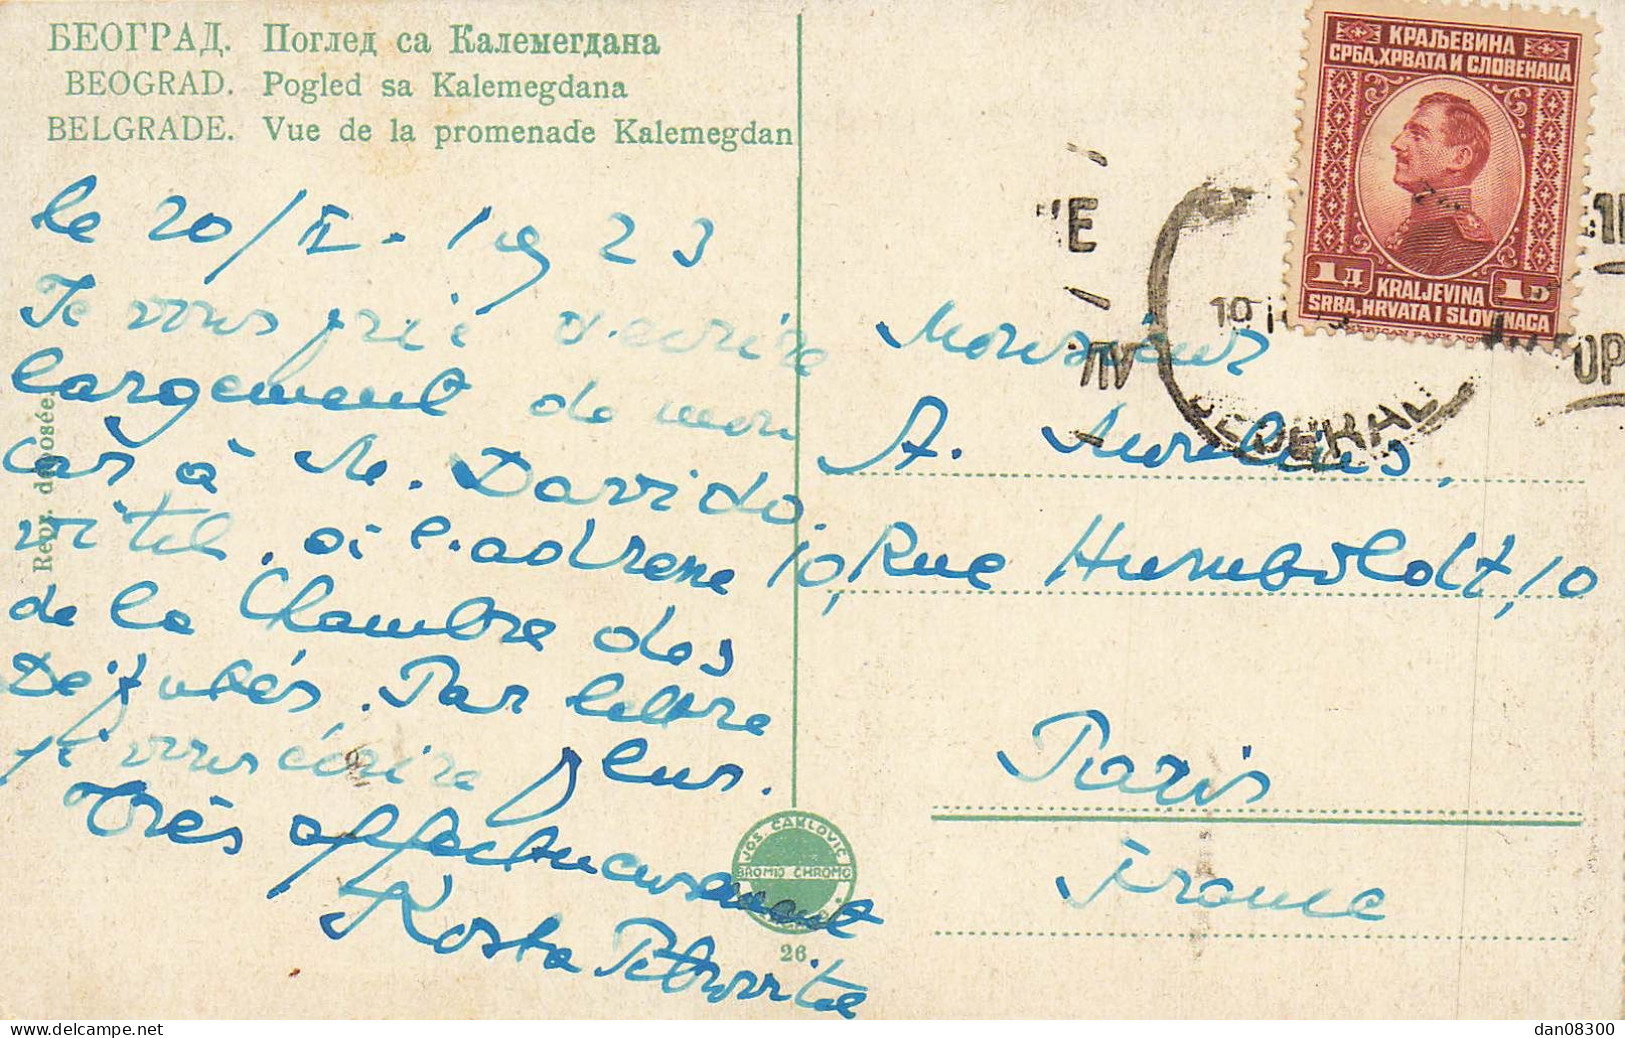 БЕОГРАД. Поглед са Калемегдана
BEOGRAD. Pogled sa Kalemegdana
BELGRADE. Vue de la promenade Kalemegdan
le 20/II-1923
Je vous prie d'ecrire
largement de mon
cas à M. Davido.
vitch. à l'adresse
de la Chambre des
Députés. Par lettre
je vous écrire plus.
Très affectueusement
Kosta Petrovitch
Repr. déposée.
JOS. ČAKLOVIĆ
BROMO CHROMO
26
КРАЉЕВИНА
СРБА, ХРВАТА И СЛОВЕНАЦА
1 Д
1 D
KRALJEVINA
SRBA, HRVATA I SLOVENACA
Monsieur
A. Aurelius,
10, Rue Humboldt, 10
Paris
France
dan08300